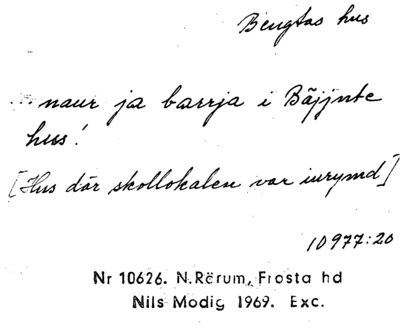 Bengtas hus
... naur ja barrja i Bäjjnte
huss!
[Hus där skollokalen var inrymd]
10977:20
Nr 10626. N.Rörum, Frosta hd
Nils Modig 1969. Exc.